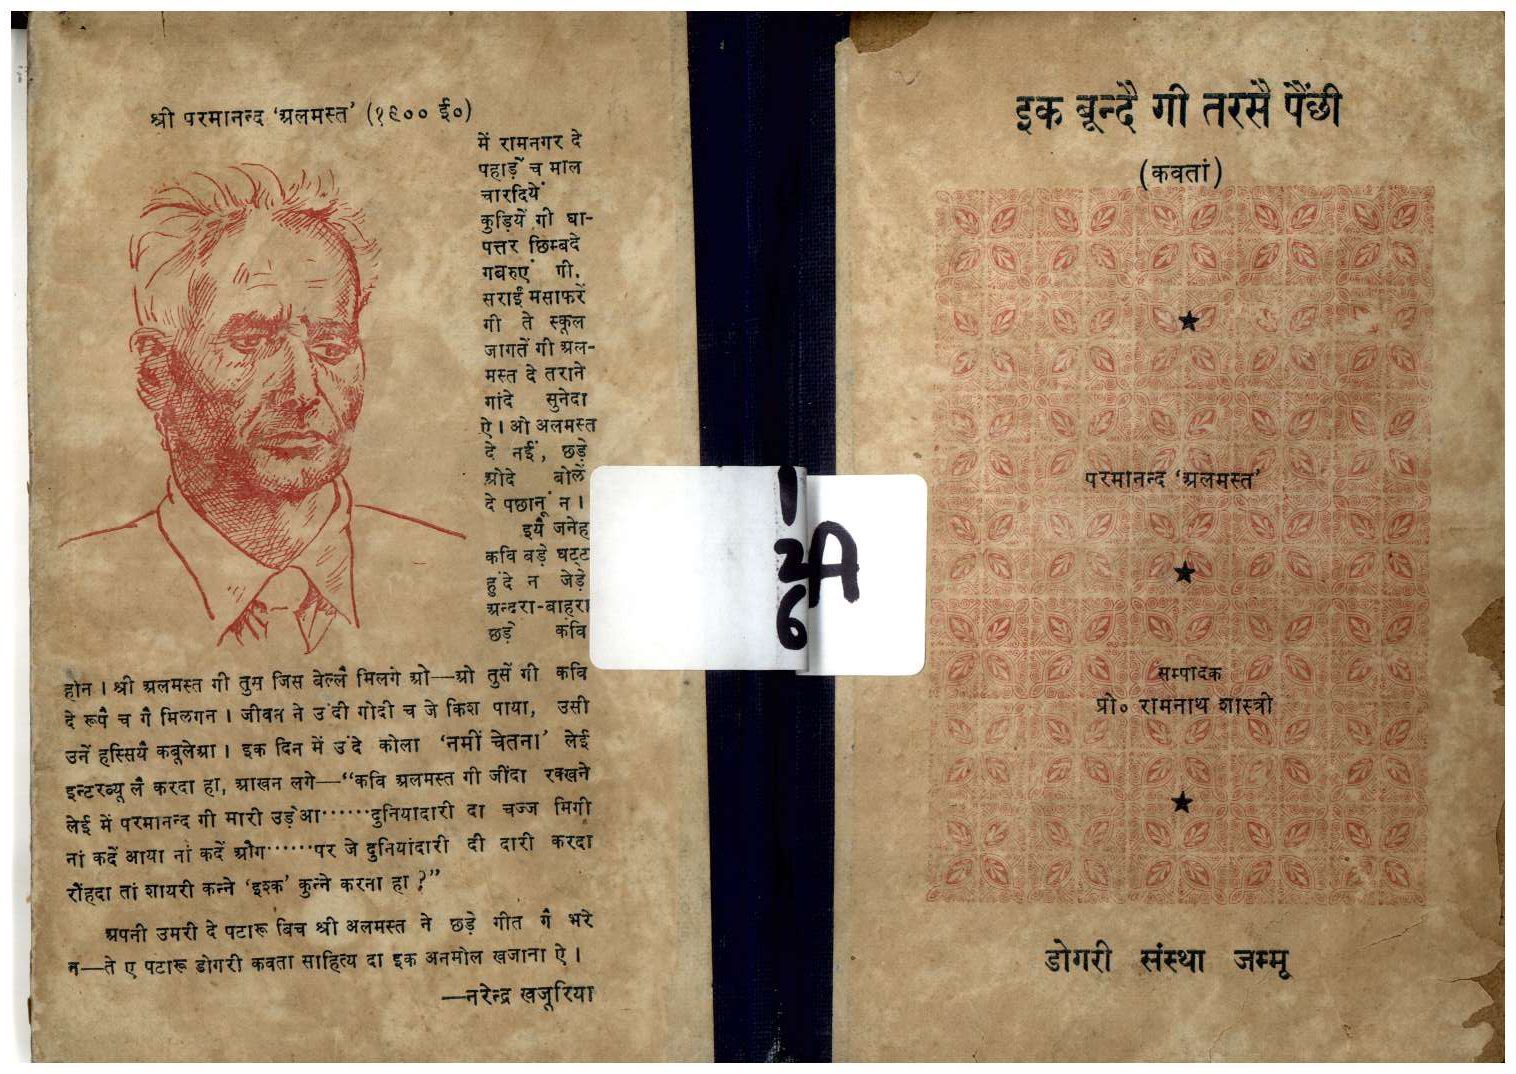 श्री परमानन्द ‘अलमस्त’ (१९०० ई०)
में रामनगर दे
पहाड़ें च माल
चारदियें
कुड़ियें गी घा-
पत्तर छिम्बदे
गबरुएं गी.
सराईं मसाफरें
गी ते स्कूल
जागतें गी अल-
मस्त दे तराने
गांदे सुनेदा
ऐ। ओ अलमस्त
दे नईं, छड़े
ओदे बोलें
दे पछानूं न।
इयै जनेह
कवि बड़े घट्ट
हुंदे न जेड़े
अन्दरा-बाहरा
छड़े कवि
होन। श्री अलमस्त गी तुस जिस बेल्लै मिलगे ओ—ओ तुसें गी कवि
दे रूपै च गै मिलगन। जीवन ने उंदी गोदी च जे किश पाया, उसी
उनें हस्सियै कबूलेआ। इक दिन में उंदे कोला ‘नमीं चेतना’ लेई
इन्टरव्यू लै करदा हा, आखन लगे—“कवि अलमस्त गी जींदा रक्खने
लेई में परमानन्द गी मारी उड़ेआ······दुनियादारी दा चज्ज मिगी
नां कदें आया नां कदें औग······पर जे दुनियांदारी दी दारी करदा
रौंहदा तां शायरी कन्ने ‘इश्क’ कुन्ने करना हा?”
अपनी उमरी दे पटारू बिच श्री अलमस्त ने छड़े गीत गै भरे
न—ते ए पटारू डोगरी कवता साहित्य दा इक अनमोल खजाना ऐ।
—नरेन्द्र खजूरिया
1
2A
6
इक बून्दै गी तरसै पैंछी
(कवतां)
परमानन्द ‘अलमस्त’
सम्पादक
प्रो० रामनाथ शास्त्री
डोगरी संस्था जम्मू